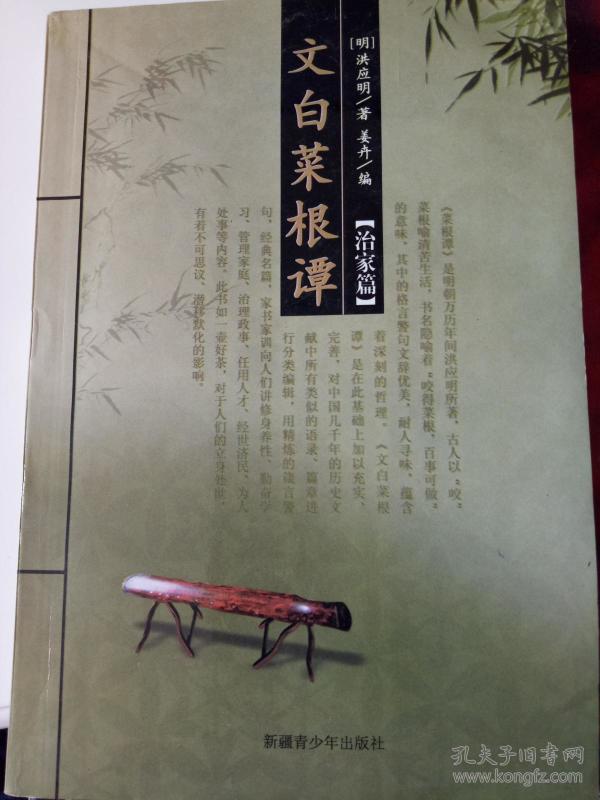 文白菜根谭
[明]洪应明/著 姜卉/编
【治家篇】
《菜根谭》是明朝万历年间洪应明所著,古人以“咬”
菜根喻清苦生活,书名隐喻着“咬得菜根、百事可做”
的意味,其中的格言警句文辞优美,耐人寻味,蕴含
着深刻的哲理。《文白菜根
谭》是在此基础上加以充实、
完善,对中国几千年的历史文
献中所有类似的语录、篇章进
行分类编辑,用精炼的箴言警
句,经典名篇,家书家训向人们讲修身养性、勤奋学
习、管理家庭、治理政事、任用人才、经世济民、为人
处事等内容。此书如一壶好茶,对于人们的立身处世,
有着不可思议、潜移默化的影响。
新疆青少年出版社
孔夫子旧书网
www.kongfz.com